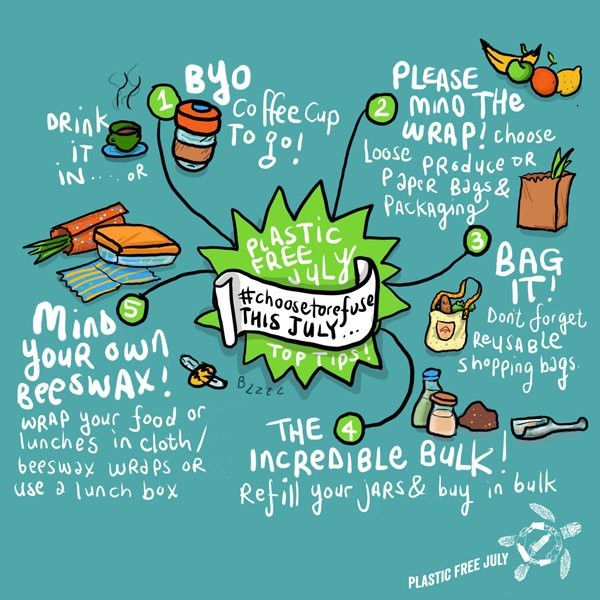 PLASTIC
FREE
JULY
#choosetorefuse
THIS JULY...
TOP TIPS!
1
DRINK
IT
IN..... OR
BYO
Coffee Cup
To go!
2
PLEASE
MIND THE
WRAP! choose
Loose PRoduce OR
PaPeR Bags &
PACKAGING
3
BAG
IT!
Don't forget
ReUSABLE
Shopping bags.
4
THE
INCREDIBLE BULK!
Refill your JARS & buy in bulk
5
MinD
youR own
BeesWAX!
WRAP your food or
lunches in cloth/
beeswax wraps or
use a lunch box
Bzzzz
PLASTIC FREE JULY